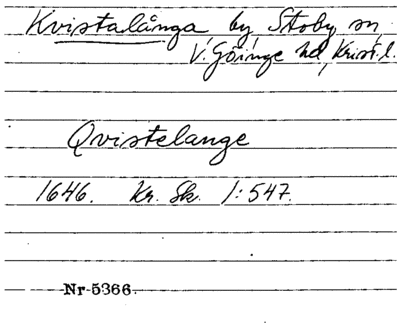 Kvistalånga by, Stoby sn,
V. Göinge hd, Krist. l.
Qvistelange
1646. Kr. Sk. 1:547.
Nr 5366.